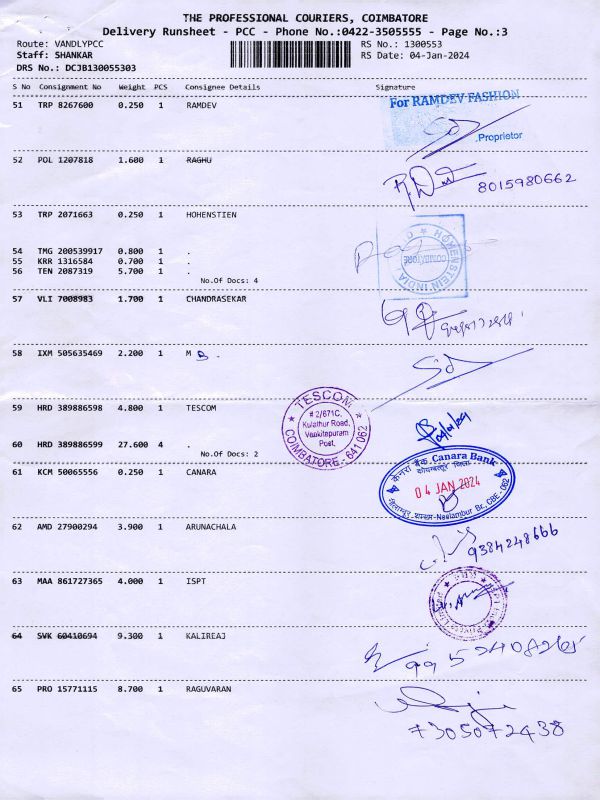 THE PROFESSIONAL COURIERS, COIMBATORE
Delivery Runsheet - PCC - Phone No.:0422-3505555 - Page No.:3
Route: VANDLYPCC RS No.: 1300553
Staff: SHANKAR RS Date: 04-Jan-2024
DRS No.: DCJB130055303
S No Consignment No Weight PCS Consignee Details Signature
51 TRP 8267600 0.250 1 RAMDEV
For RAMDEV FASHION
Proprietor
52 POL 1207818 1.600 1 RAGHU
8015980662
53 TRP 2071663 0.250 1 HOHENSTIEN
HOHENSTEIN INDIA
COIMBATORE
54 TMG 200539917 0.800 1 .
55 KRR 1316584 0.700 1 .
56 TEN 2087319 5.700 1 .
No.Of Docs: 4
57 VLI 7008983 1.700 1 CHANDRASEKAR
58 IXM 505635469 2.200 1 M B .
59 HRD 389886598 4.800 1 TESCOM
TESCOM
# 2/671C,
Kulathur Road,
Venkitapuram
Post,
COIMBATORE - 641 062
60 HRD 389886599 27.600 4 .
No.Of Docs: 2
61 KCM 50065556 0.250 1 CANARA
केनरा बैंक Canara Bank
कोयम्बत्तूर जिला
04 JAN 2024
नीलाम्बूर शाखा Neelambur Br., CBE - 062
62 AMD 27900294 3.900 1 ARUNACHALA
9384248666
63 MAA 861727365 4.000 1 ISPT
64 SVK 60410694 9.300 1 KALIREAJ
65 PRO 15771115 8.700 1 RAGUVARAN
7305072438